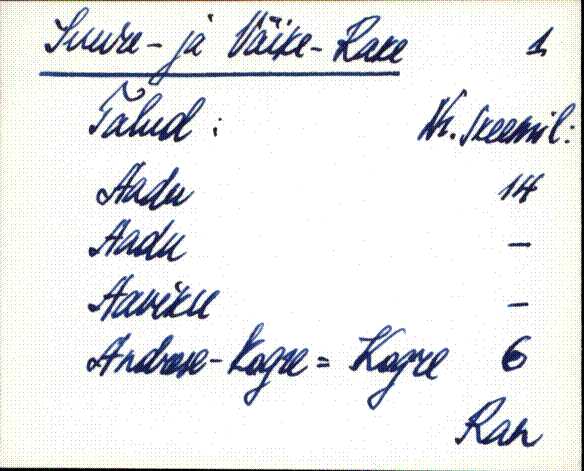 Suure- ja Väike-Rake 1
Talud: Nr. skeemil:
Aadu 14
Aadu –
Aaviku –
Andrese-Kogre = Kogre 6
Ran